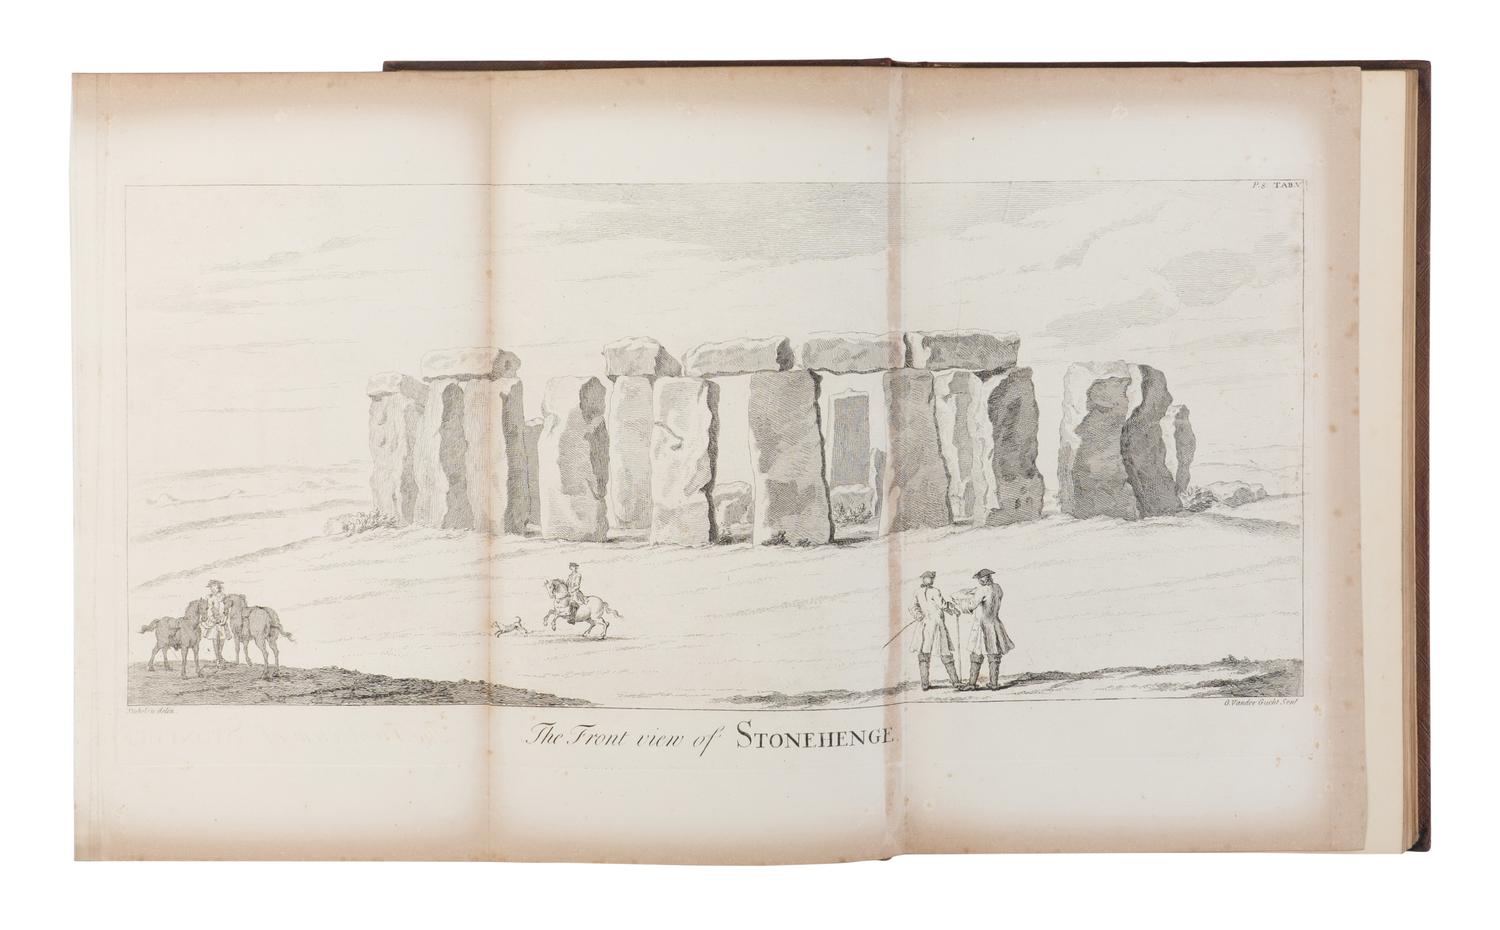 P. 8. TAB. V
Stukeley delin.
G. Vander Gucht Scul.
The Front view of STONEHENGE.